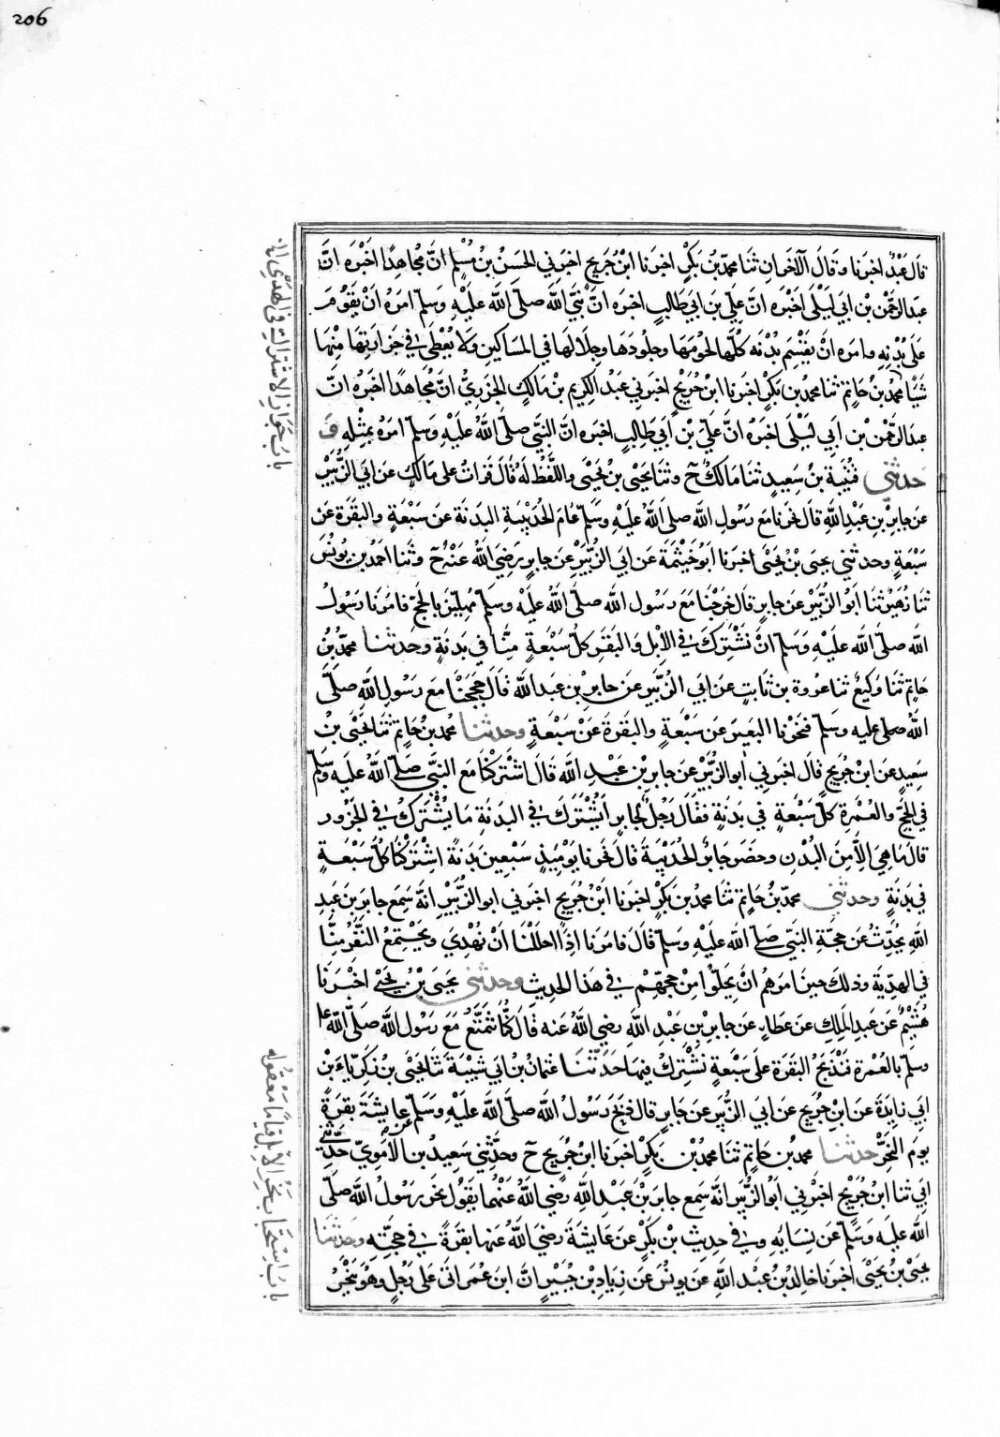 206
قال عَبْدٌ اخبرنا وقال الآخرانِ ثنا محمد بن بَكْرٍ اخبرنا ابنُ جُرَيجٍ اخبرني الحسنُ بنُ مُسْلِمٍ انَّ مُجاهِدًا اَخْبَرَه انَّ
عبدَ الرحمٰن بن ابي لَيْلَى اَخْبَرَه انَّ عَلِيَّ بن ابي طالِبٍ اخبره انّ نَبِيَّ الله صلّى الله عليه وسلّم امَرَهُ اَنْ يَقُوْمَ
على بُدْنِهِ وامَره انْ يَقْسِمَ بُدْنَه كُلَّها لحُوْمَها وجلودَها وجِلالَها في المساكين ولَا يُعْطِيَ في جزارتها مِنْها
شَيْأ محمدُ بنُ حاتِمٍ ثنا محمد بن بَكْرٍ اخبرنا ابنُ جُرَيْجٍ اخبرني عبدُ الكريم بن مالكٍ الجزريُّ انَّ مُجَاهدًا اخبرهُ انَّ
عبدَ الرحمٰن بن ابي لَيْلَى اخبَرَهُ انَّ عَلِيَّ بْنَ اَبي طالبٍ اخبره انَّ النبيَّ صلّى اللهُ عليه وسلّم امَرَهُ بمثْلِهِ وَ
حدثني قُتَيْبَة بنُ سَعِيدٍ ثنا مَالكٌ ح وثنا يَحْيَى بنُ يَحْيَى واللّفْظُ لهُ قال قرأتُ على مالكٍ عن ابي الزُّبَيْر
عن جابرِ بنِ عبد اللهِ قال نحرنا مَعَ رسُولِ الله صلى اللهُ عليه وسلّم عامَ الحُدَيْبِيةِ البَدَنَةَ عن سَبْعَةٍ والبَقَرَةَ عن
سَبْعَةٍ وحدثني يحيى بْنُ يَحْيَى اخبرنا اَبو خَيْثَمَةَ عن اَبي الزُّبَيْرِ عن جابرٍ رَضِيَ اللهُ عَنْهُ ح وثنا احمَدُ بن يُونُسَ
ثنا زُهَيْرٌ ثنا ابو الزُّبَيْرِ عن جابرٍ قال خَرجْنا مَعَ رسُول الله صلى اللهُ عليه وسلّم مُهِلِّيْنَ بالحَجِّ فامَرَنا رَسُولُ
الله صلّى الله عليه وَسَلَّمَ انْ نَشْتَرِكَ في الاِبْلِ والبَقَرِ كلُّ سَبْعَةٍ مِنَّا في بَدَنَةٍ وحدثنا محمّدُ بنُ
حاتِمٍ ثنا وكيعٌ ثنا عزرة بن ثابتٍ عن ابي الزُّبَيْرِ عن جابرِ بنِ عبد الله قال حَجَجْنَا مَعَ رسولِ اللهِ صلّى
اللهُ صلى عليه وسلّم فنَحَرْنا البَعيرَ عن سَبْعَةٍ والبَقَرَةَ عَنْ سَبْعَةٍ وحدثنا محمد بنُ حاتِمٍ ثنا يَحْيَى بنُ
سَعيدٍ عن ابنِ جُرَيْجٍ قالَ اخبرني ابو الزُّبَيْرِ عن جابرِ بْنِ عبد الله قالَ اشْتَرَكْنَا مَعَ النبيّ صلى اللهُ عليه وسلّم
في الحَجِّ والعُمْرَةِ كلُّ سَبْعَةٍ في بَدَنَةٍ فقال رَجُلٌ لجابرٍ اَيُشْتَرَكُ في البدَنَةِ مَا يُشْتَرَكُ في الجَزُورِ
قالَ ماهيَ الاّ مِنَ البُدْنِ وحضَرَ جابرٌ الحُدَيْبِيَةَ قالَ نحرنا يَوْمَئِذٍ سَبْعينَ بَدَنَةً اشْتَرَكْنَا كُلُّ سَبْعَةٍ
في بَدَنَةٍ وحدثني محمّدُ بنُ حاتِمٍ ثنا محمدُ بن بَكْرٍ اخبرنا ابْنُ جُرَيجٍ اخبرني ابو الزُّبَيْرِ انّه سَمِعَ جابرَ بن عبد
اللهِ يحُدِّثُ عن حجّةِ النبيّ صلى الله عليه وسلّم قالَ فامَرَنا اِذا احلَلْنَا انْ نُهْدِيَ ويَجْتَمِعُ النَّفَرُ مِنَّا
في الهَدِيّةِ وذلكَ حِينَ امرهُم انْ يَحِلُّوا مِنْ حجّهِمْ في هَذا الحديث وحدثني يحيى بْنُ يَحْيى اخْبَرنا
هُشَيْمٌ عن عبد الملِكِ عن عطاءٍ عن جابرِ بْنِ عبدِ اللهِ رضي اللهُ عنه قال كُنّا نَتمتّعُ مَعَ رسُولِ الله صلّى اللهُ عل
وسلّم بالعُمْرَةِ فنَذْبَحُ البقَرَةَ على سَبْعَةٍ نشْتَرِكُ فيها حَدَّثَنا عثمانُ بنُ ابي شَيْبَةَ ثنا يحْيَى بن زَكَرِيَّاءَ بْن
ابي زايِدَةَ عن ابنِ جُريجٍ عن ابي الزُّبَيرِ عن جابرٍ قال ذَبَحَ رَسُوْلُ الله صلّى اللهُ عليه وسلّم عن عايِشَةَ بقَرَةً
يومَ النّحْرِ حدثنا محمد بنُ حاتِمٍ ثنا محمدُ بْن بَكْرٍ اخبرنا ابنُ جُرَيجٍ ح وحدّثني سَعِيدُ بن الأُمَوِيّ حدّثني
ابي ثنا ابنُ جُرَيْجٍ اخبرَني ابو الزُّبَيْرِ انّه سَمِعَ جابرَ بْنَ عبدِ الله رضي الله عَنْهُما يَقُولُ نحَرَ رسُولُ اللهِ صلّى
الله عليه وَسَلَّمَ عن نِسَايِه وفي حديثِ بْنِ بَكْرٍ عن عايشَةَ رضي اللهُ عنها بقَرَةً في حجّتِهِ وحدثنا
يحيىَ بنُ يَحْيَى اخبرنا خالدُ بْنُ عَبد اللهِ عن يونُسَ عن زِيادِ بْنِ جُبَيْرٍ انّ ابنَ عُمَرَ اتى على رَجُلٍ وهُوَ يَنْحَرُ
بابُ جَوازِ الاشتراكِ في الهَدْيِ
بابُ اسْتِحْبابِ نَحْرِ الاِبلِ قِيامًا مَعْقولَه